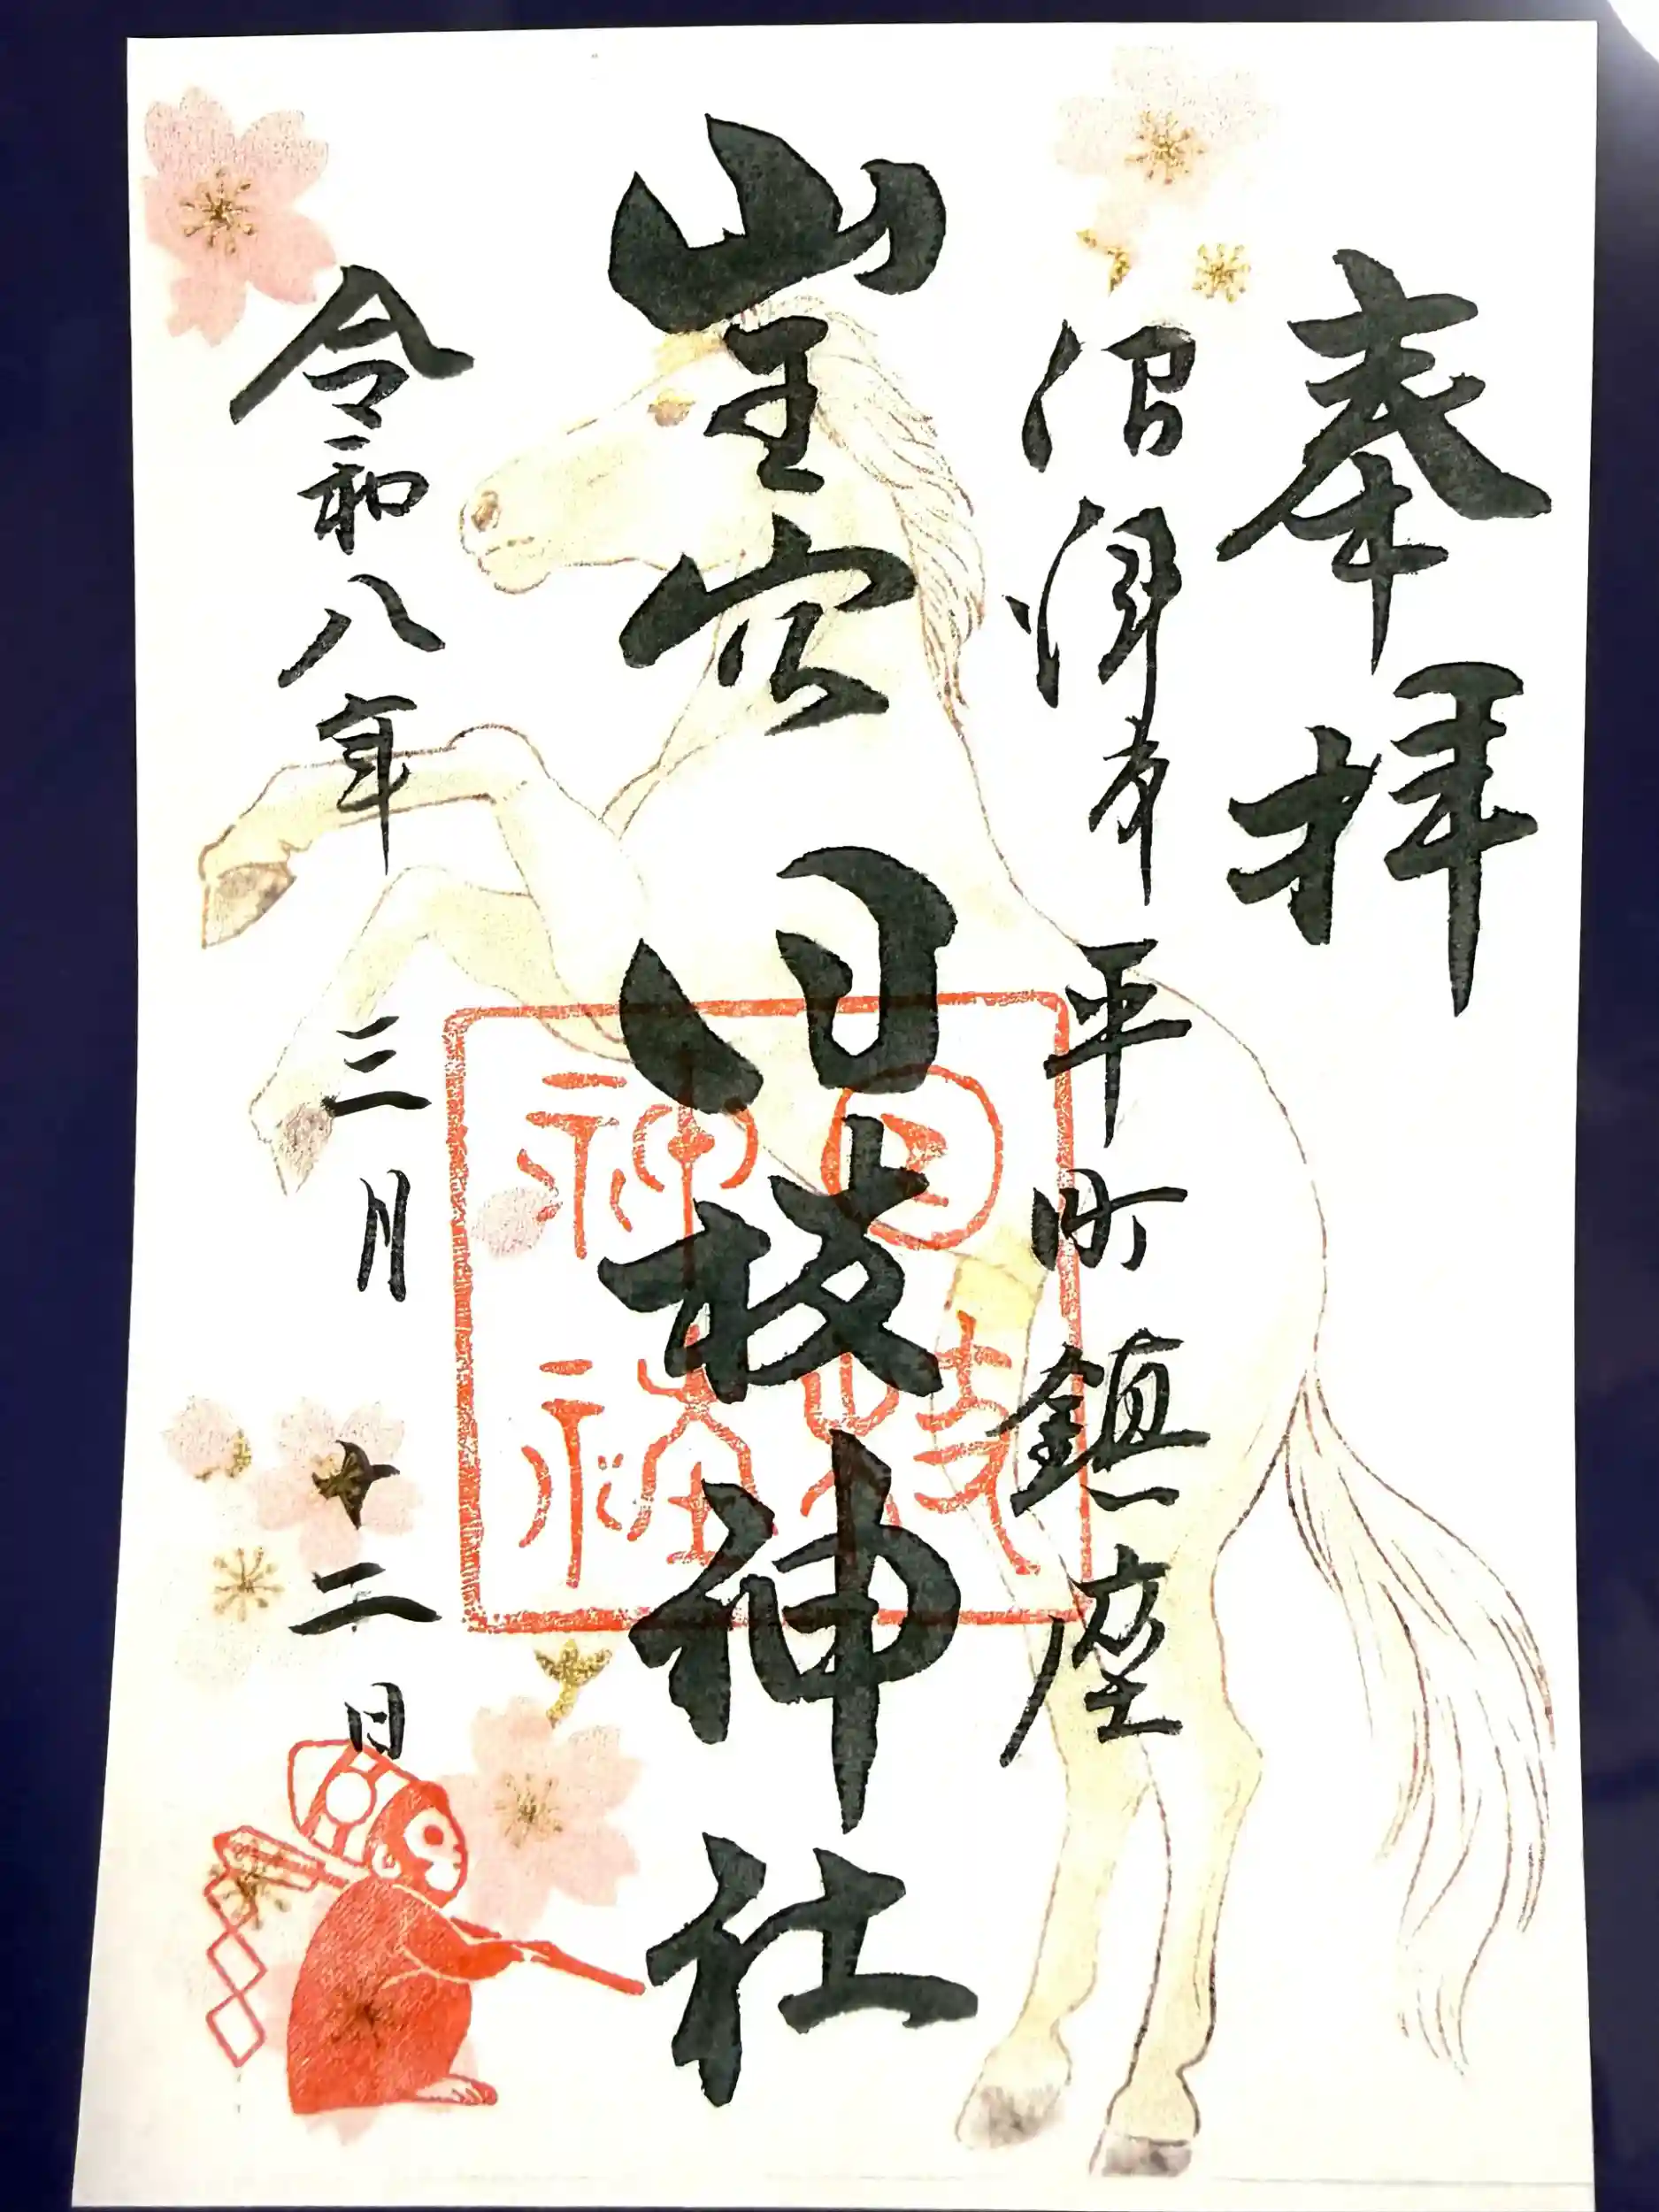 奉拝
沼津市平町鎮座
山王宮日枝神社
日枝神社
令和八年三月十二日